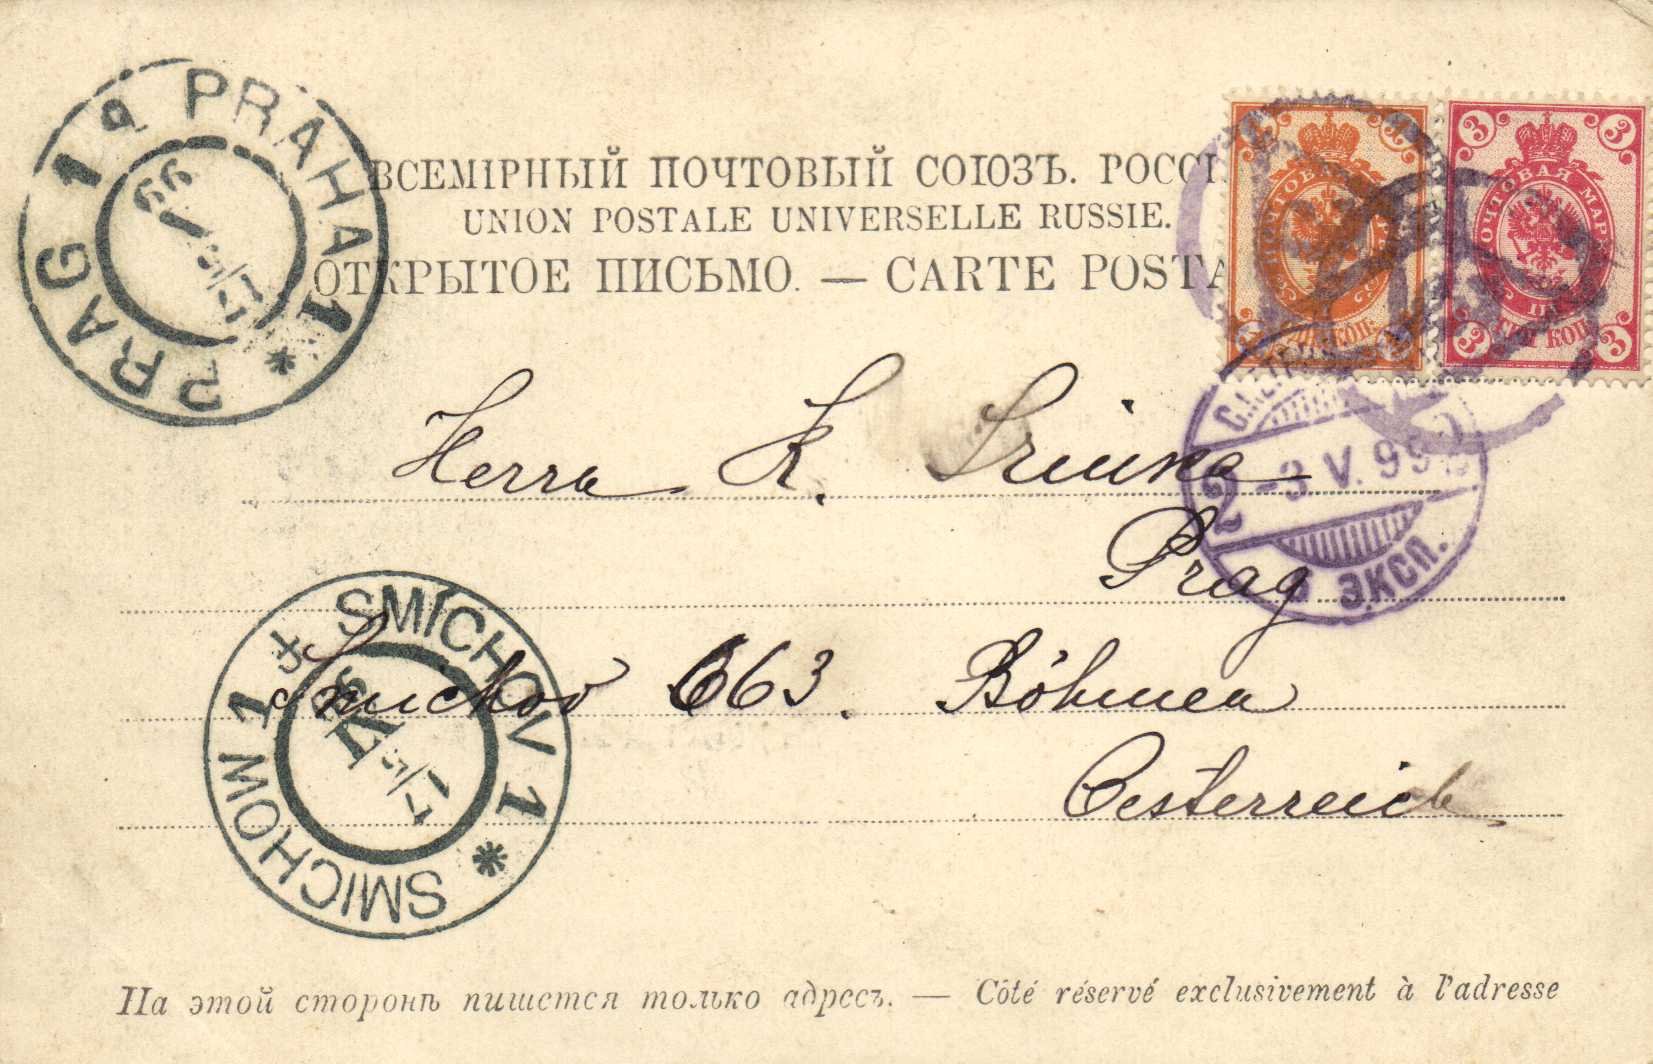 ВСЕМІРНЫЙ ПОЧТОВЫЙ СОЮЗЪ. РОССІ
UNION POSTALE UNIVERSELLE RUSSIE.
ОТКРЫТОЕ ПИСЬМО. — CARTE POSTA
PRAHA 1
PRAG 1
17/5
99
1 1
ПОЧТОВА
КОП.
3 3
ПОЧТОВАЯ МАРК
КОП.
3 3
2 -3 V. 99
ЭКСП.
Herrn K.
Prag
Smichov 663. Böhmen
Oesterreich
SMÍCHOV 1
SMICHOW 1
17/5
На этой сторонѣ пишется только адресъ. — Côté réservé exclusivement à l'adresse